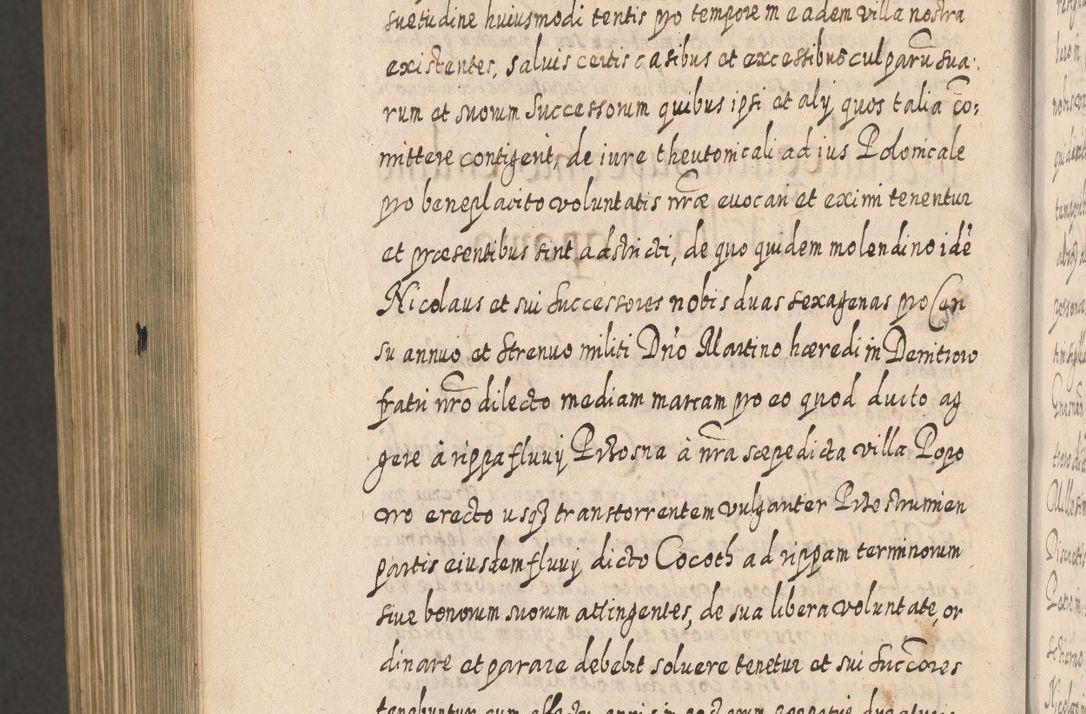 suetudine huiusmodi tentis pro tempore in eadem villa nostra
existentes, salvis certis casibus et excessibus culparũ sua:
rum et suorum Successorum quibus ipsi et alÿ quos talia cõ:
mittere contigerit, de iure theutonicali ad ius Polonicale
pro beneplacito voluntatis nr̃æ evocari et eximi tenentur
et præsentibus sint adstricti, de quo quidem molendino idẽ
Nicolaus et sui Successores nobis duas sexagenas pro Cen
su annuo et strenuo militi Dño Martino hæredi in Demitrow
fratri nr̃o dilecto mediam marcam pro eo quod ducto ag
gere à rippa fluvÿ Prosna à nr̃a sæpedicta villa Popo
wo erecto usq3 trans torrentem vulgariter Prostrumien
partis eiusdem fluvÿ dicto Cocoth ad rippam terminorum
sive bonorum suorum attingentes, de sua libera voluntate, or
dinare et parare debebit solvere tenetur et sui Succc̃ores